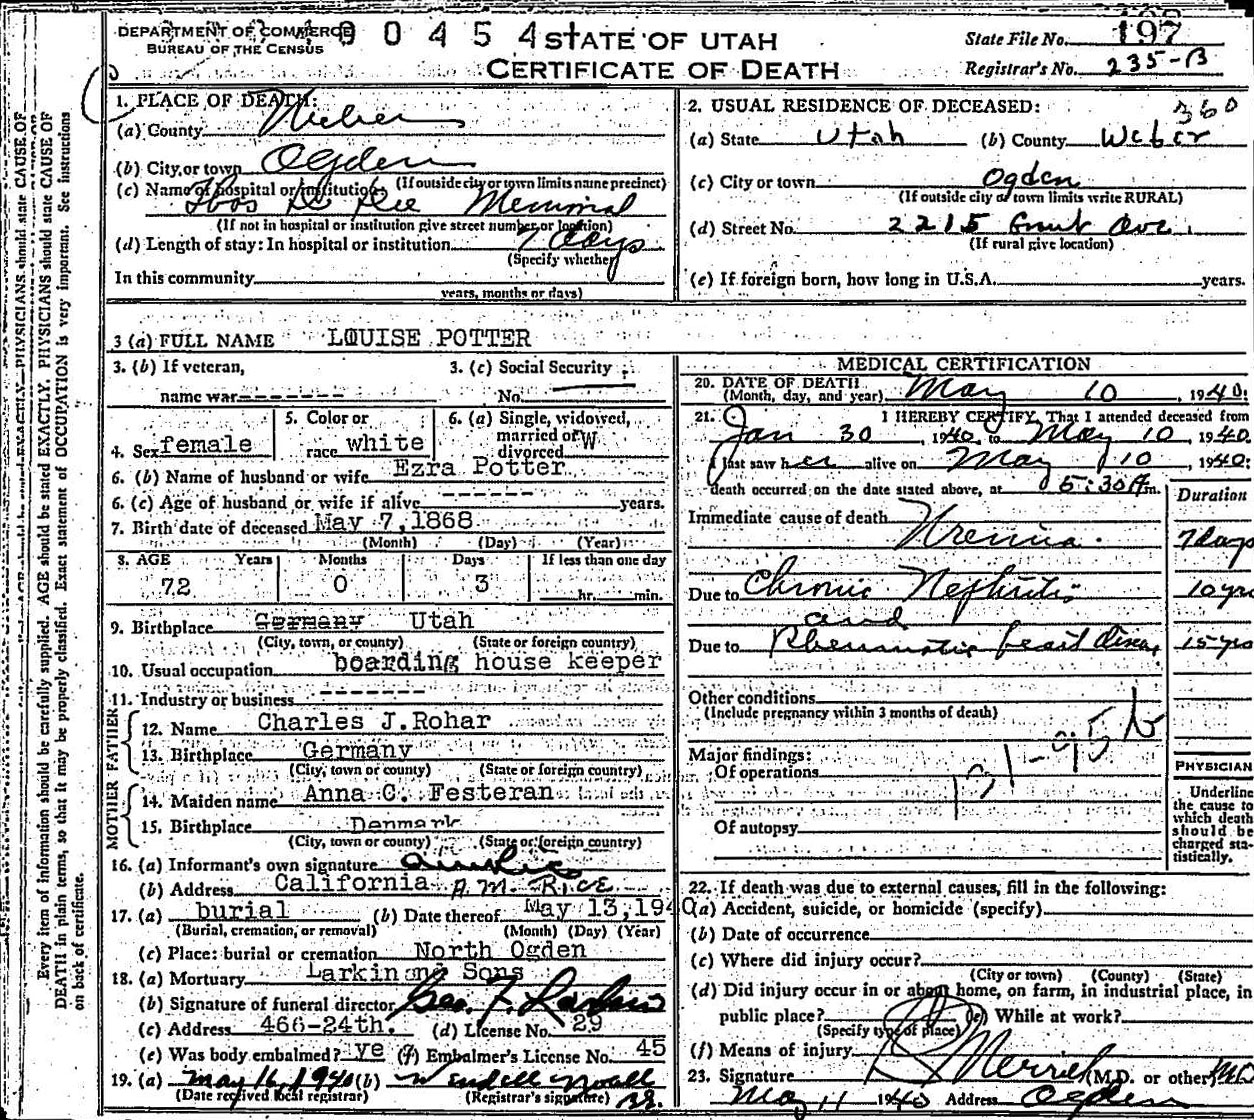 DEPARTMENT OF COMMERCE
BUREAU OF THE CENSUS
0 0 4 5 4
STATE OF UTAH
CERTIFICATE OF DEATH
State File No. 197
Registrar's No. 235-B
360
1. PLACE OF DEATH:
(a) County Weber
(b) City or town Ogden
(If outside city or town limits name precinct)
(c) Name of hospital or institution: Thos D Dee Memorial
(If not in hospital or institution give street number or location)
(d) Length of stay: In hospital or institution 7 days
(Specify whether
In this community
years, months or days)
2. USUAL RESIDENCE OF DECEASED:
(a) State Utah (b) County Weber
(c) City or town Ogden
(If outside city or town limits write RURAL)
(d) Street No. 2215 Grant Ave.
(If rural give location)
(e) If foreign born, how long in U.S.A. years.
3 (a) FULL NAME LOUISE POTTER
3. (b) If veteran,
name war
3. (c) Social Security
No.
4. Sex female
5. Color or
race white
6. (a) Single, widowed,
married or
divorced W
6. (b) Name of husband or wife Ezra Potter
6. (c) Age of husband or wife if alive years.
7. Birth date of deceased May 7, 1868
(Month) (Day) (Year)
8. AGE Years Months Days If less than one day
72 0 3 hr. min.
9. Birthplace Germany Utah
(City, town, or county) (State or foreign country)
10. Usual occupation boarding house keeper
11. Industry or business
FATHER
12. Name Charles J.Rohar
13. Birthplace Germany
(City, town or county) (State or foreign country)
MOTHER
14. Maiden name Anna C. Festeran
15. Birthplace Denmark
(City, town or county) (State or foreign country)
16. (a) Informant's own signature
(b) Address California A.M. RICE
17. (a) burial (b) Date thereof May 13,1940
(Burial, cremation, or removal) (Month) (Day) (Year)
(c) Place: burial or cremation North Ogden
18. (a) Mortuary Larkin and Sons
(b) Signature of funeral director Geo. F. Larkin
(c) Address 466-24th. (d) License No. 29
(e) Was body embalmed? ye (f) Embalmer's License No. 45
19. (a) May 16, 1940 (b) Wendell Noall
(Date received local registrar) (Registrar's signature)
MEDICAL CERTIFICATION
20. DATE OF DEATH
(Month, day, and year) May 10, 1940.
21. I HEREBY CERTIFY, That I attended deceased from
Jan 30, 1940, to May 10, 1940.
I last saw her alive on May 10, 1940:
death occurred on the date stated above, at 5:30 Am.
Duration
Immediate cause of death Uremia. 7 days
Due to Chronic Nephritis 10 yrs
and
Due to Rheumatic heart disease 15 yrs
Other conditions
(Include pregnancy within 3 months of death)
Major findings:
Of operations
131-95b
Of autopsy
PHYSICIAN
Underline
the cause to
which death
should be
charged sta-
tistically.
22. If death was due to external causes, fill in the following:
(a) Accident, suicide, or homicide (specify)
(b) Date of occurrence
(c) Where did injury occur?
(City or town) (County) (State)
(d) Did injury occur in or about home, on farm, in industrial place, in
public place? (e) While at work?
(Specify type of place)
(f) Means of injury
23. Signature Merrill (M.D. or other) MD
May 11 1940 Address Ogden
Every item of information should be carefully supplied. AGE should be stated EXACTLY. PHYSICIANS should state CAUSE OF
DEATH in plain terms, so that it may be properly classified. Exact statement of OCCUPATION is very important. See instructions
on back of certificate.